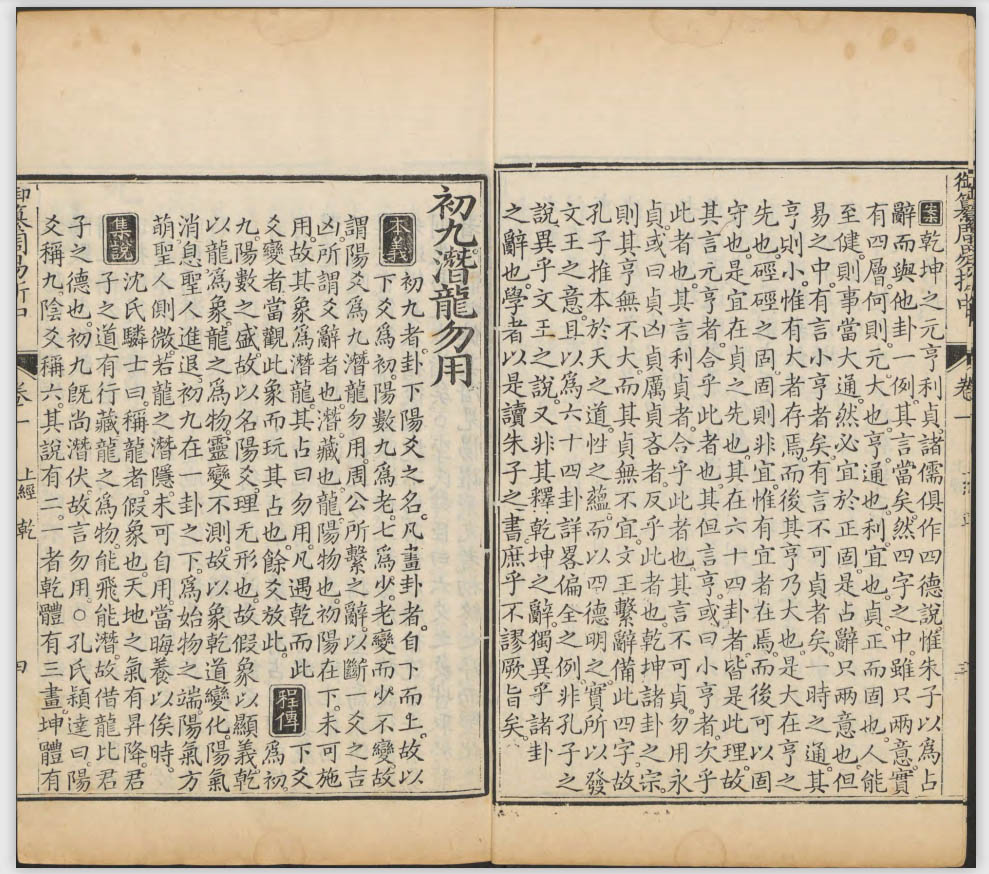 御纂周易折中 卷一
案乾坤之元亨利貞。諸儒俱作四德說。惟朱子以爲占
辭。而與他卦一例。其言當矣。然四字之中。雖只兩意。實
有四層。何則。元。大也。亨。通也。利。宜也。貞。正而固也。人能
至健。則事當大通。然必宜於正固。是占辭只兩意也。但
易之中。有言小亨者矣。有言不可貞者矣。一時之通。其
亨則小。惟有大者存焉。而後其亨乃大也。是大在亨之
先也。硜硜之固。固則非宜。惟有宜者在焉。而後可以固
守也。是宜在貞之先也。其在六十四卦者。皆是此理。故
其言元亨者。合乎此者也。其但言亨。或曰小亨者。次乎
此者也。其言利貞者。合乎此者也。其言不可貞。勿用永
貞。或曰貞凶貞厲貞吝者。反乎此者也。乾坤諸卦之宗。
則其亨無不大。而其貞無不宜。文王繫辭備此四字。故
孔子推本於天之道。性之蘊。而以四德明之。實所以發
文王之意。且以爲六十四卦詳畧偏全之例。非孔子之
說。異乎文王之說。又非其釋乾坤之辭。獨異乎諸卦
之辭也。學者以是讀朱子之書。庶乎不謬厥旨矣。
初九潛龍勿用
本義 初九者。卦下陽爻之名。凡畫卦者。自下而上。故以
下爻爲初。陽數九爲老。七爲少。老變而少不變。故
謂陽爻爲九。潛龍勿用。周公所繫之辭。以斷一爻之吉
凶。所謂爻辭者也。潛。藏也。龍。陽物也。初陽在下。未可施
用。故其象爲潛龍。其占曰勿用。凡遇乾而此
爻變者。當觀此象而玩其占也。餘爻放此。 程傳 下爻
爲初
九。陽數之盛。故以名陽爻。理无形也。故假象以顯義。乾
以龍爲象。龍之爲物。靈變不測。故以象乾道變化。陽氣
消息。聖人進退。初九在一卦之下。爲始物之端。陽氣方
萌。聖人側微。若龍之潛隱。未可自用。當晦養以俟時。
集說 沈氏驎士曰。稱龍者。假象也。天地之氣有昇降。君
子之道有行藏。龍之爲物。能飛能潛。故借龍比君
子之德也。初九旣尚潛伏。故言勿用。○孔氏穎達曰。陽
爻稱九。陰爻稱六。其說有二。一者乾體有三畫。坤體有
卷一 上經 乾 四